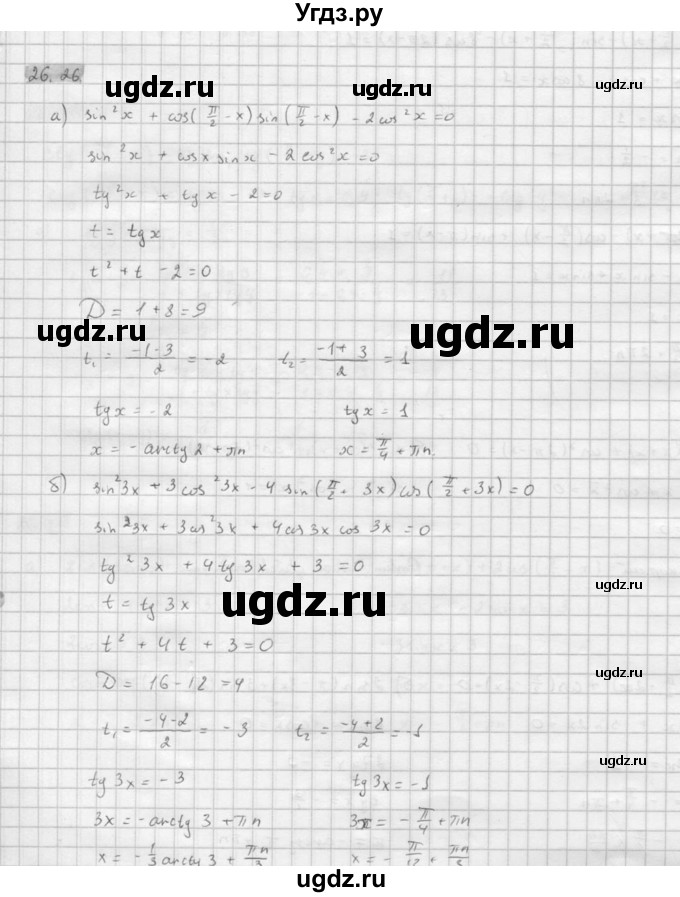 Угдз.ру
26.26
ugdz.ru ugdz.ru ugdz.ru
а) sin²x + cos(π/2 - x) sin(π/2 - x) - 2cos²x = 0
sin²x + cosx sinx - 2cos²x = 0
tg²x + tg x - 2 = 0
t = tg x
t² + t - 2 = 0
D = 1 + 8 = 9
ugdz.ru ugdz.ru ugdz.ru
t₁ = (-1-3)/2 = -2 t₂ = (-1+3)/2 = 1
tg x = -2 tg x = 1
x = -arctg 2 + πn x = π/4 + πn
ugdz.ru
б) sin²3x + 3cos²3x - 4 sin(π/2 + 3x) cos(π/2 + 3x) = 0
sin²3x + 3cos²3x + 4cos3x cos 3x = 0
tg²3x + 4tg3x + 3 = 0
ugdz.ru ugdz.ru
t = tg 3x
t² + 4t + 3 = 0
D = 16 - 12 = 4
ugdz.ru
t₁ = (-4-2)/2 = -3 t₂ = (-4+2)/2 = -1
tg 3x = -3 tg 3x = -1
ugdz.ru
3x = -arctg 3 + πn 3x = -π/4 + πn
x = -1/3 arctg 3 + πn/3 x = -π/12 + πn/3
ugdz.ru